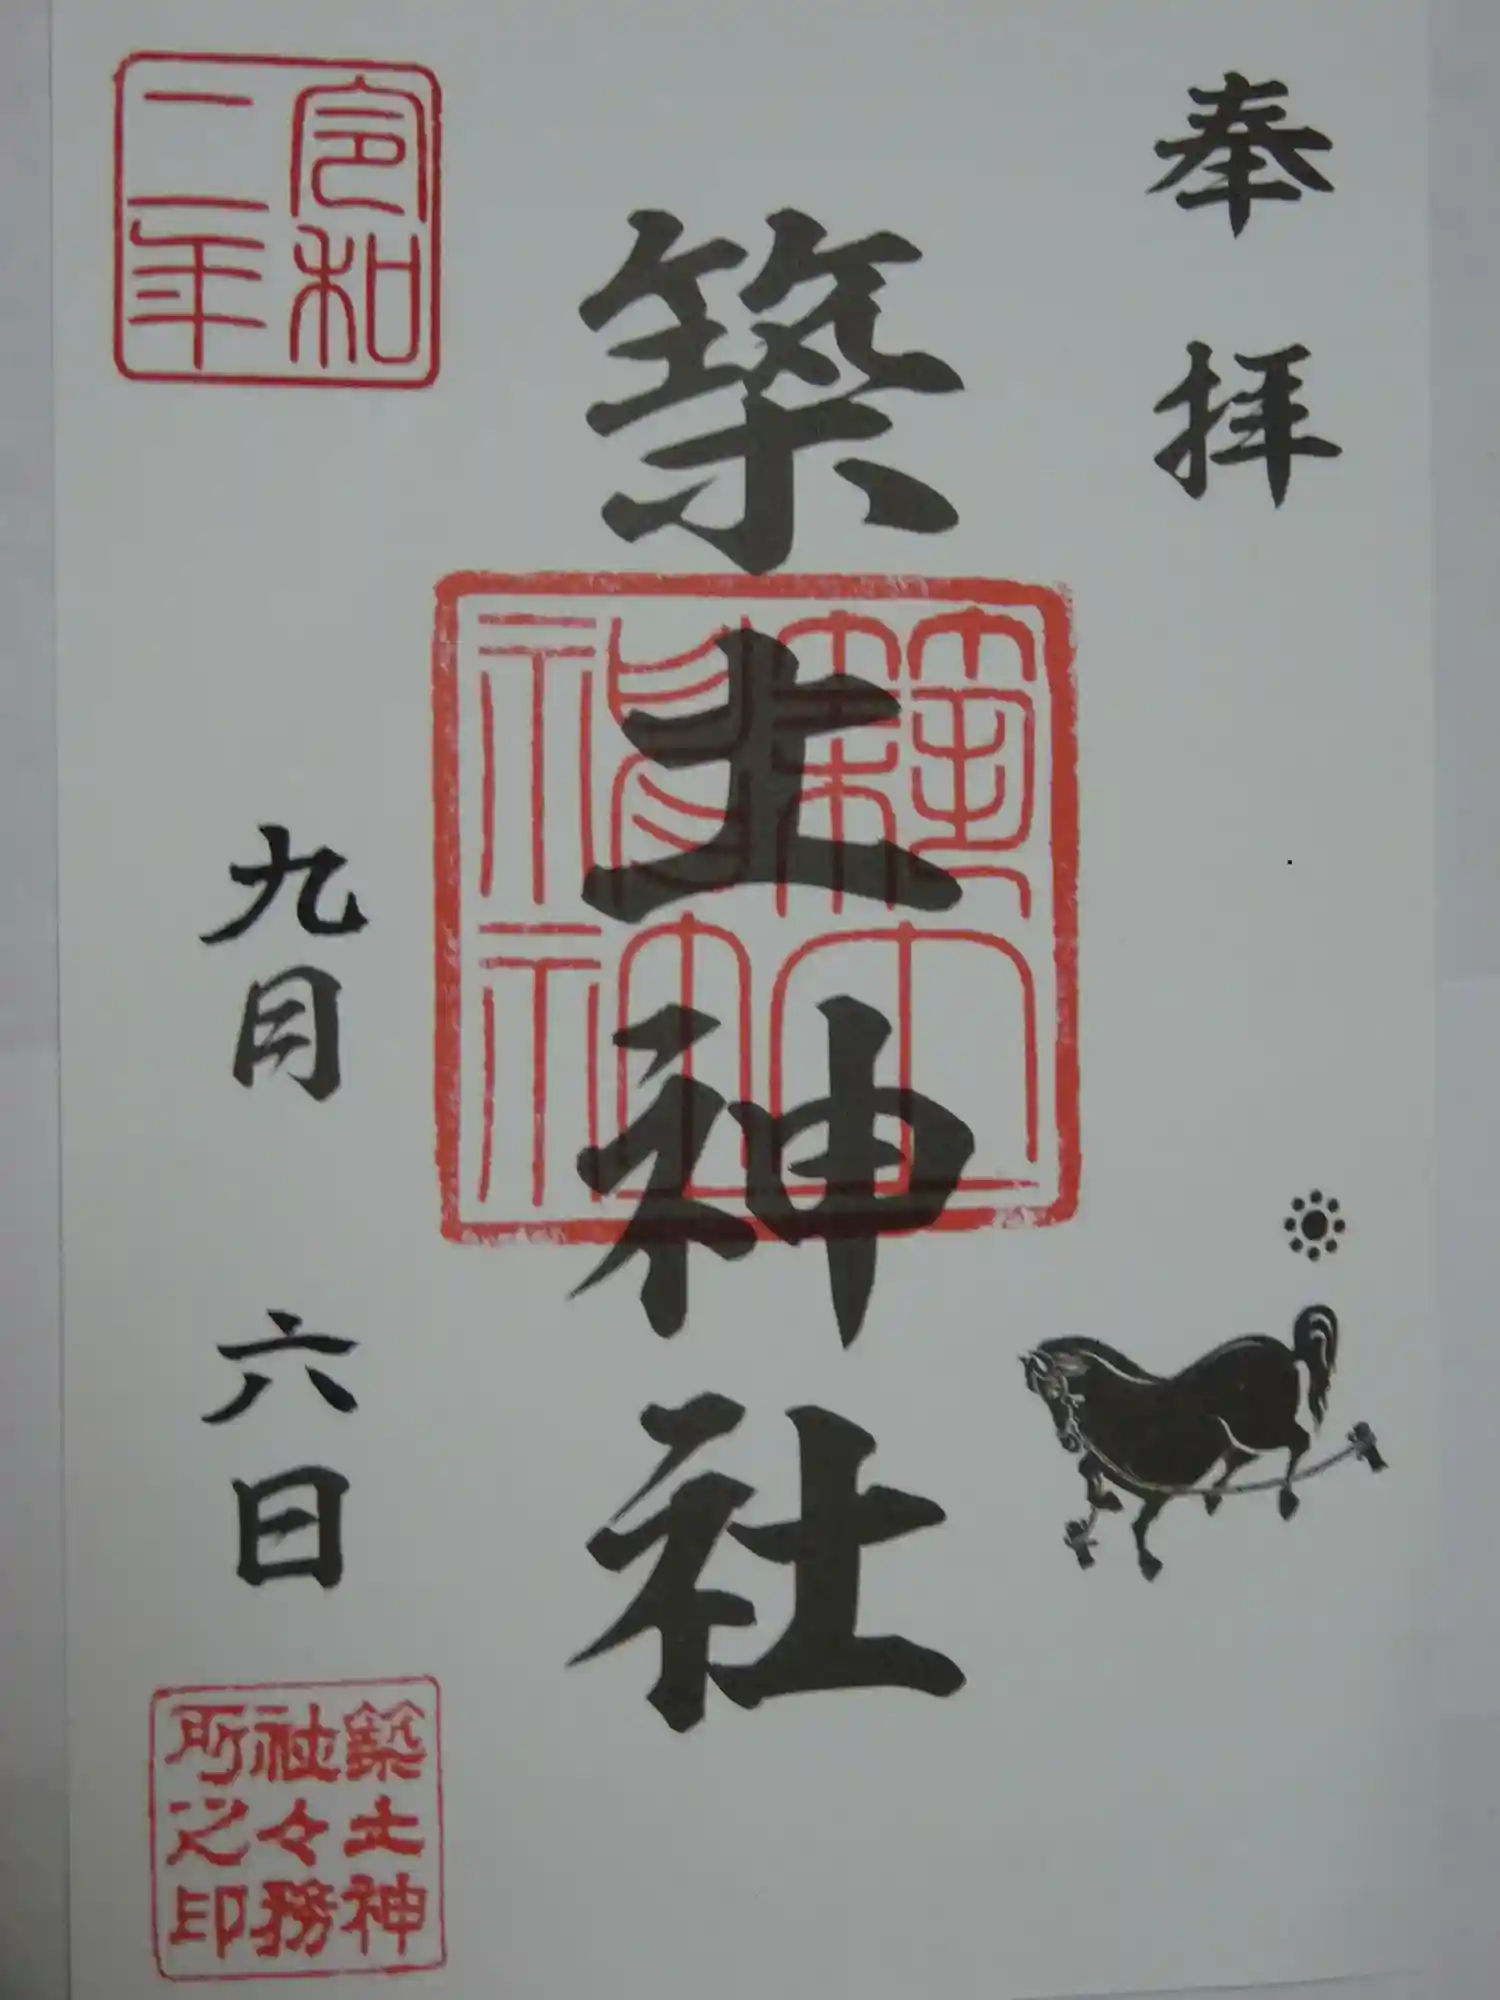 奉拝
築土神社
令和
二年
九月 六日
築土神
社々務
所之印